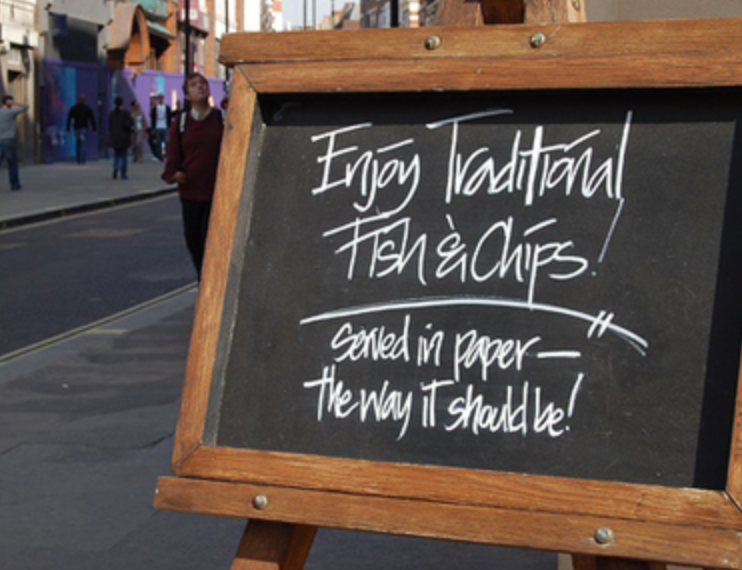 Enjoy Traditional
Fish & Chips!
served in paper—
the way it should be!